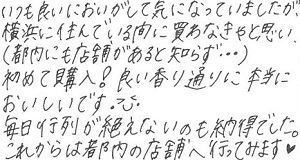 いつも良いにおいがして気になっていましたが
横浜に住んでいる間に買わなきゃと思い
(都内にも店舗があると知らず…)
初めて購入!良い香り通りに本当に
おいしいです。
毎日行列が絶えないのも納得でした。
これからは都内の店舗へ行ってみます♥